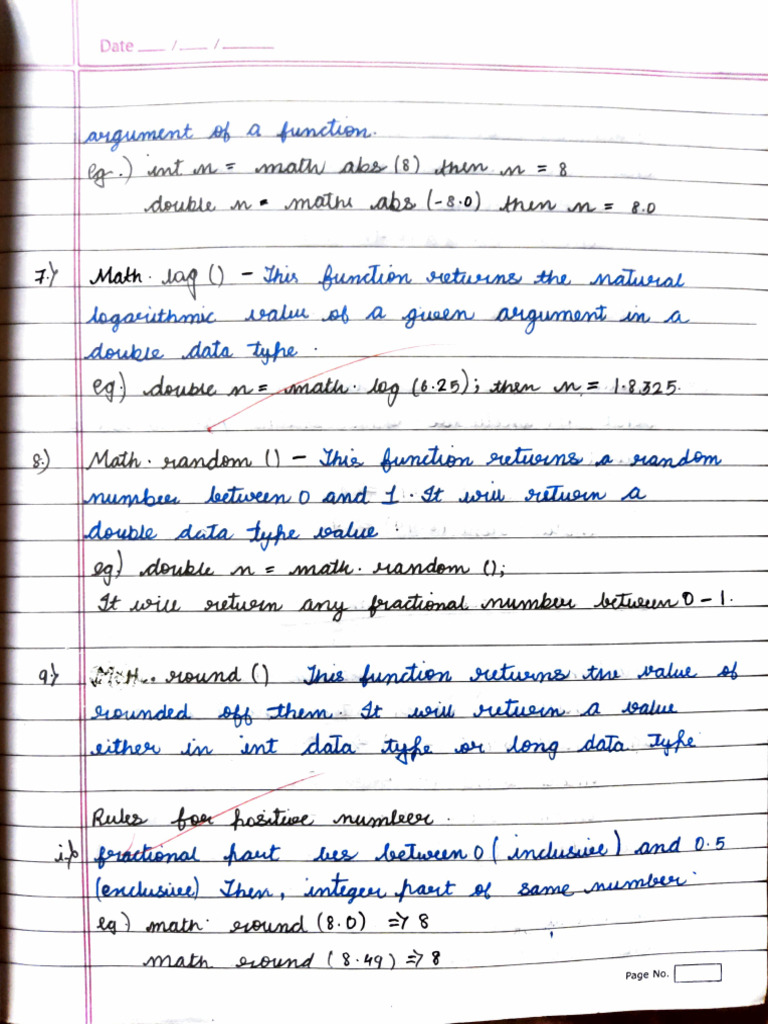 Date ___ / ___ / ______
argument of a function.
eg.) int n = math abs (8) then n = 8
double n = math abs (-8.0) then n = 8.0
7.) Math. log () - This function returns the natural
logarithmic value of a given argument in a
double data type.
eg.) double n = math. log (6.25); then n = 1.8325.
8.) Math. random () - This function returns a random
number between 0 and 1. It will return a
double data type value.
eg) double n = math. random ();
It will return any fractional number between 0 - 1.
9.) round () This function returns the value of
rounded off them. It will return a value
either in int data type or long data type
Rules for positive number.
i.) fractional part lies between 0 (inclusive) and 0.5
(exclusive) Then, integer part of same number.
eg) math. round (8.0) => 8
math round (8.49) => 8
Page No.